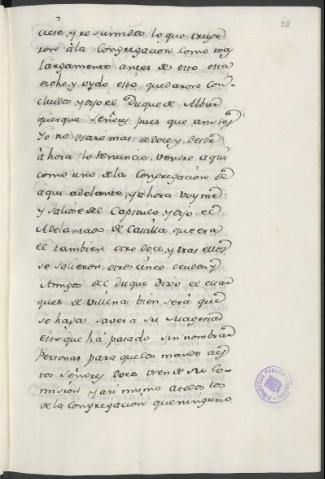 98
ciese, y resumidas lo que truxe
ron à la Congregacion como mas
largamente antes de esto esta
dicho y oydo esto quedaron con
cluidos y dixo el Duque de Albur
querque Señores pues que ansi es
Yo no usaré mas de doce y desde
àhora lo renuncio, vendre aqui
como uno de la Congregacion de
aqui adelante, y ahora voy me
y saliose del Capitulo, y dixo el
Adelantado de Castilla que era
el tambien otro doce, y tras ellos
se salieron otros cinco deudos y
Amigos del Duque Dixo el Mar
ques de Villena bien será que
se haga saver a su Magestad
esto que há pasado sin nombrar
Personas para que los mande a es
tos Señores Doce usen de su Co-
mision y ansi mismo a todos los
de la Congregacion que ninguno
BIBLIOTECA PUBLICA